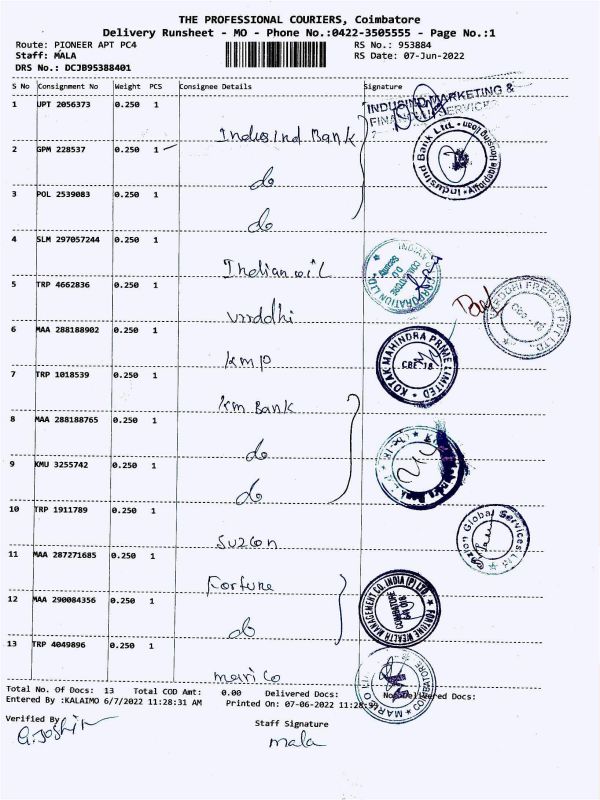 THE PROFESSIONAL COURIERS, Coimbatore
Delivery Runsheet - MO - Phone No.:0422-3505555 - Page No.:1
Route: PIONEER APT PC4 RS No.: 953884
Staff: MALA RS Date: 07-Jun-2022
DRS No.: DCJB95388401
S No Consignment No Weight PCS Consignee Details Signature
1 UPT 2056373 0.250 1 Indusind Bank
INDUSIND MARKETING &
FINANCIAL SERVICES
2 GPM 228537 0.250 1 do
IndusInd Bank Ltd. * Affordable Housing Loan
3 POL 2539083 0.250 1 do
4 SLM 297057244 0.250 1 Indian oil
5 TRP 4662836 0.250 1 vrddhi
6 MAA 288188902 0.250 1 kmp
KOTAK MAHINDRA PRIME LIMITED
CBE-18
7 TRP 1018539 0.250 1 km Bank
8 MAA 288188765 0.250 1 do
9 KMU 3255742 0.250 1 do
10 TRP 1911789 0.250 1 Suzion
Global Services Ltd.
11 MAA 287271685 0.250 1 Fortune
12 MAA 290084356 0.250 1 do
FORTUNE WEALTH MANAGEMENT CO. INDIA (P) LTD.
COIMBATORE
641 018
13 TRP 4049896 0.250 1 marico
MARICO LTD COIMBATORE
Total No. Of Docs: 13 Total COD Amt: 0.00 Delivered Docs: Not Delivered Docs:
Entered By :KALAIMO 6/7/2022 11:28:31 AM Printed On: 07-06-2022 11:28:
Verified By Staff Signature
G.Joshin mala